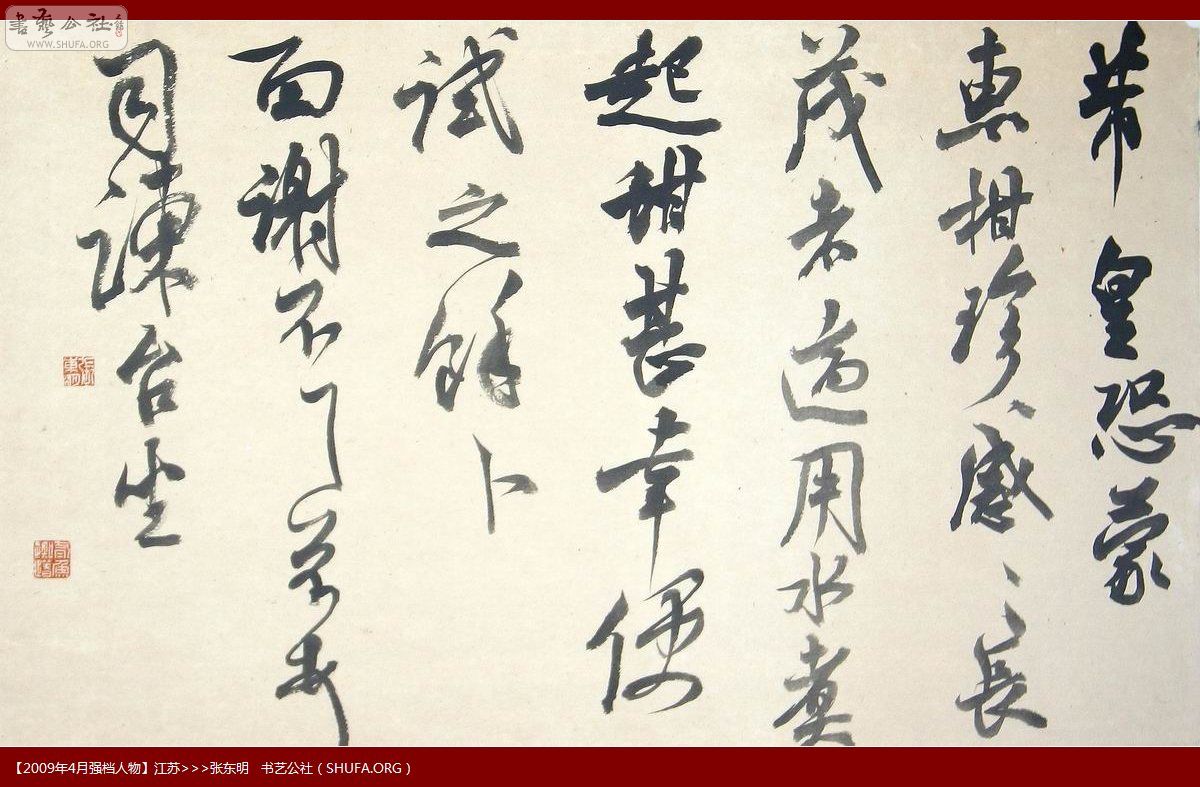 芾皇恐蒙
惠柑珍々感々長
茂者過用水煮
起甜甚幸便
試之餘卜
面謝不
司諫台坐
書藝公社
WWW.SHUFA.ORG
【2009年4月强档人物】江苏>>>张东明 书艺公社（SHUFA.ORG）